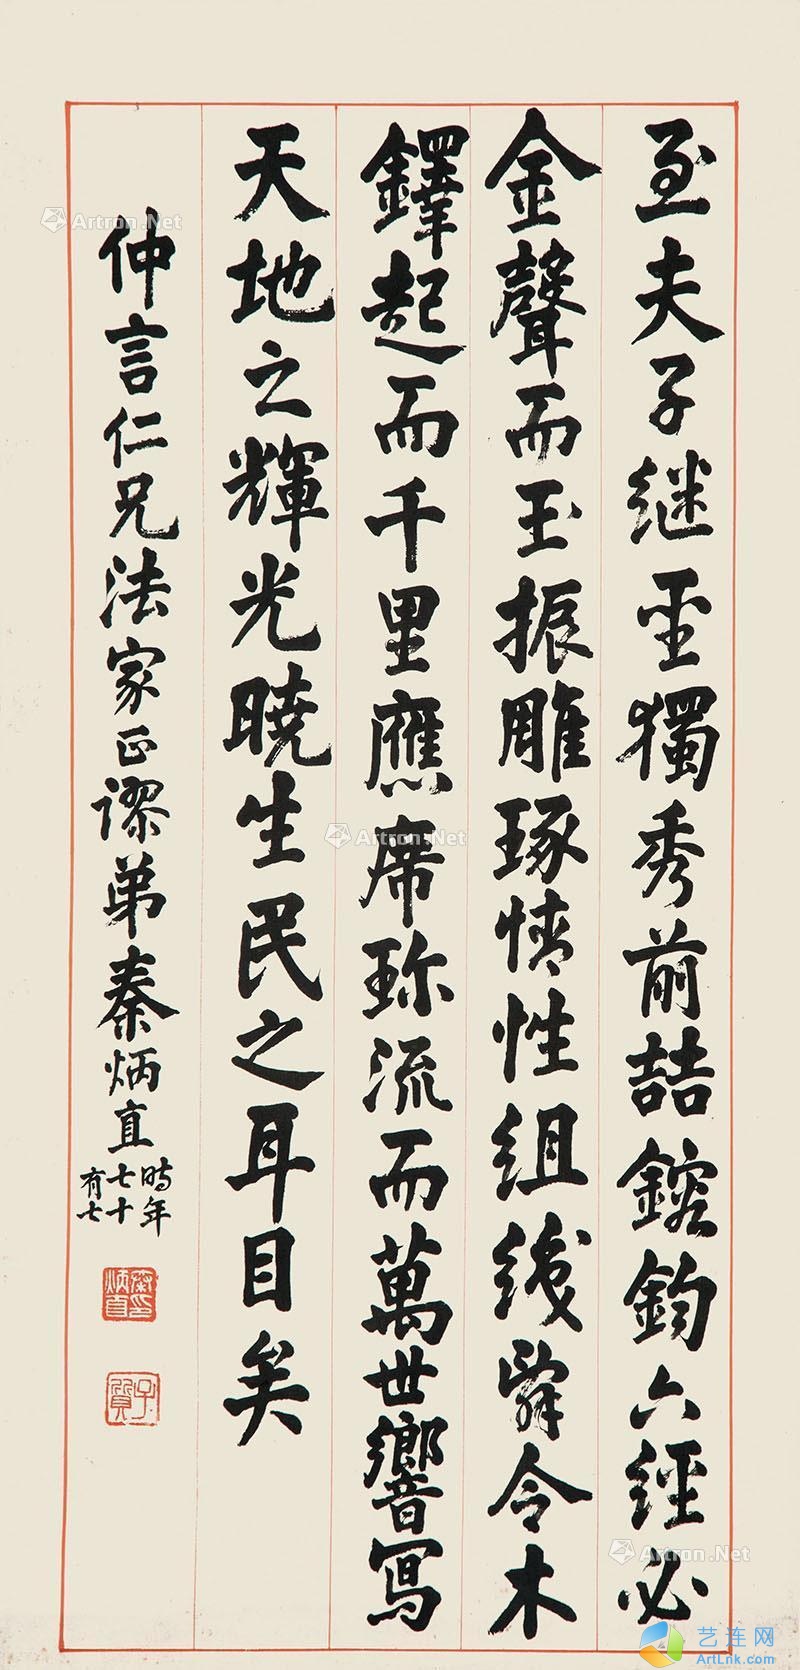 至夫子继圣獨秀前喆鎔鈞六經必
金聲而玉振雕琢情性組织辞令木
鐸起而千里應席珎流而萬世響寫
天地之輝光曉生民之耳目矣
仲言仁兄法家正謬弟秦炳直
時年
七十
有七
秦印
炳直
子
質
Artron.Net
Artron.Net
Artron.Net
Artron.Net
艺连网
ArtLnk.com